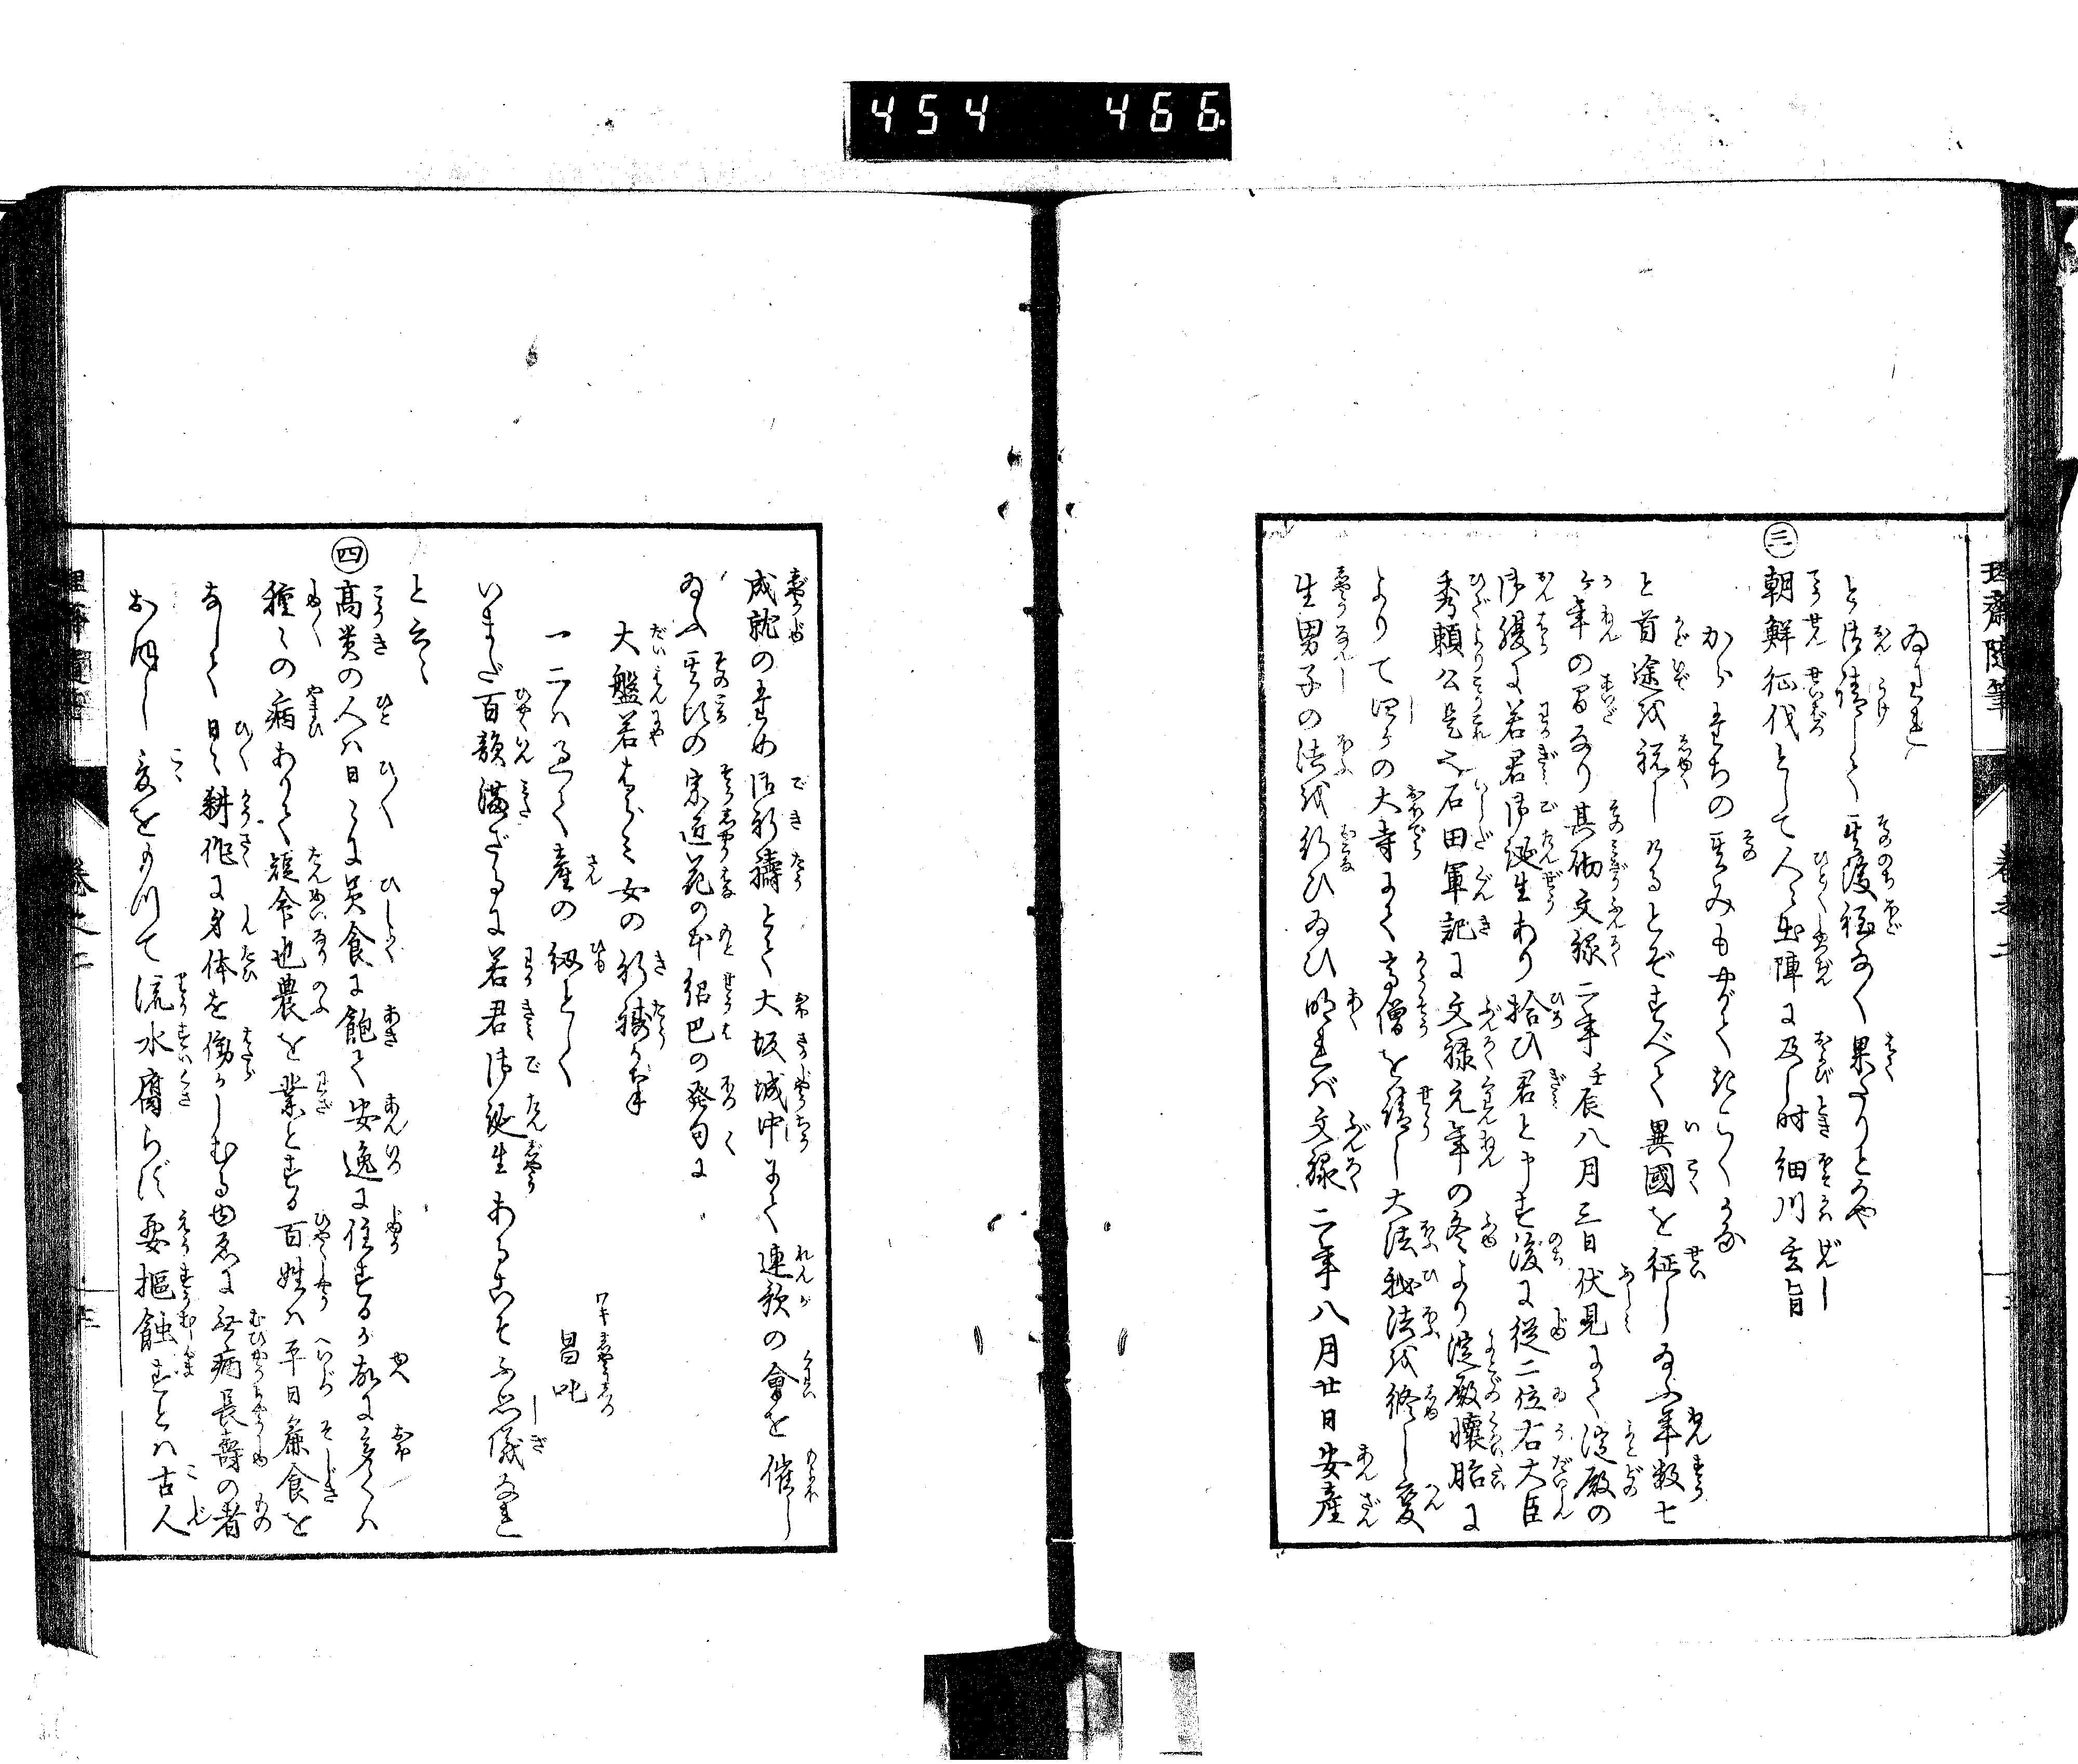 454 466
理齋随筆 巻之二
ゐまれ
と御請して其後程なく果たりとかや
㊂朝鮮征伐として人々出陣に及し時細川玄旨
からたちの其みもやがてきこくかな
と首途を祝しけるとぞすべて異國を征し給ふ年数七
ヶ年の間なり其砌文禄二年壬辰八月三日伏見にて淀殿の
御腹に若君御誕生あり拾ひ君と申す後に従二位右大臣
秀頼公是也石田軍記に文禄元年の冬より淀殿懐胎に
よりて四ヶの大寺にて高僧を請し大法秘法を修し変
生男子の法を行ひ給ひ明れば文禄二年八月廿日安産
成就のため御祈祷とて大坂城中にて連歌の會を催し
給ふ其頃の宗匠花の本紹巴の発句に
大盤若はらみ女の祈祷かな
一二ハ過て産の紐とく
ワキ 昌叱
いまだ百韻満ざるに若君御誕生あるこそ不思儀なれ
と云々
㊃高貴の人ハ日々に美食に飽て安逸に住するが故に多くハ
種々の病ありて短命也農を業とする百姓ハ平日麁食を
なして日々耕作に身体を働かしむる由ゑに無病長壽の者
おほし爰をもつて流水腐らず要樞蝕せずとハ古人
理齋随筆 巻之二